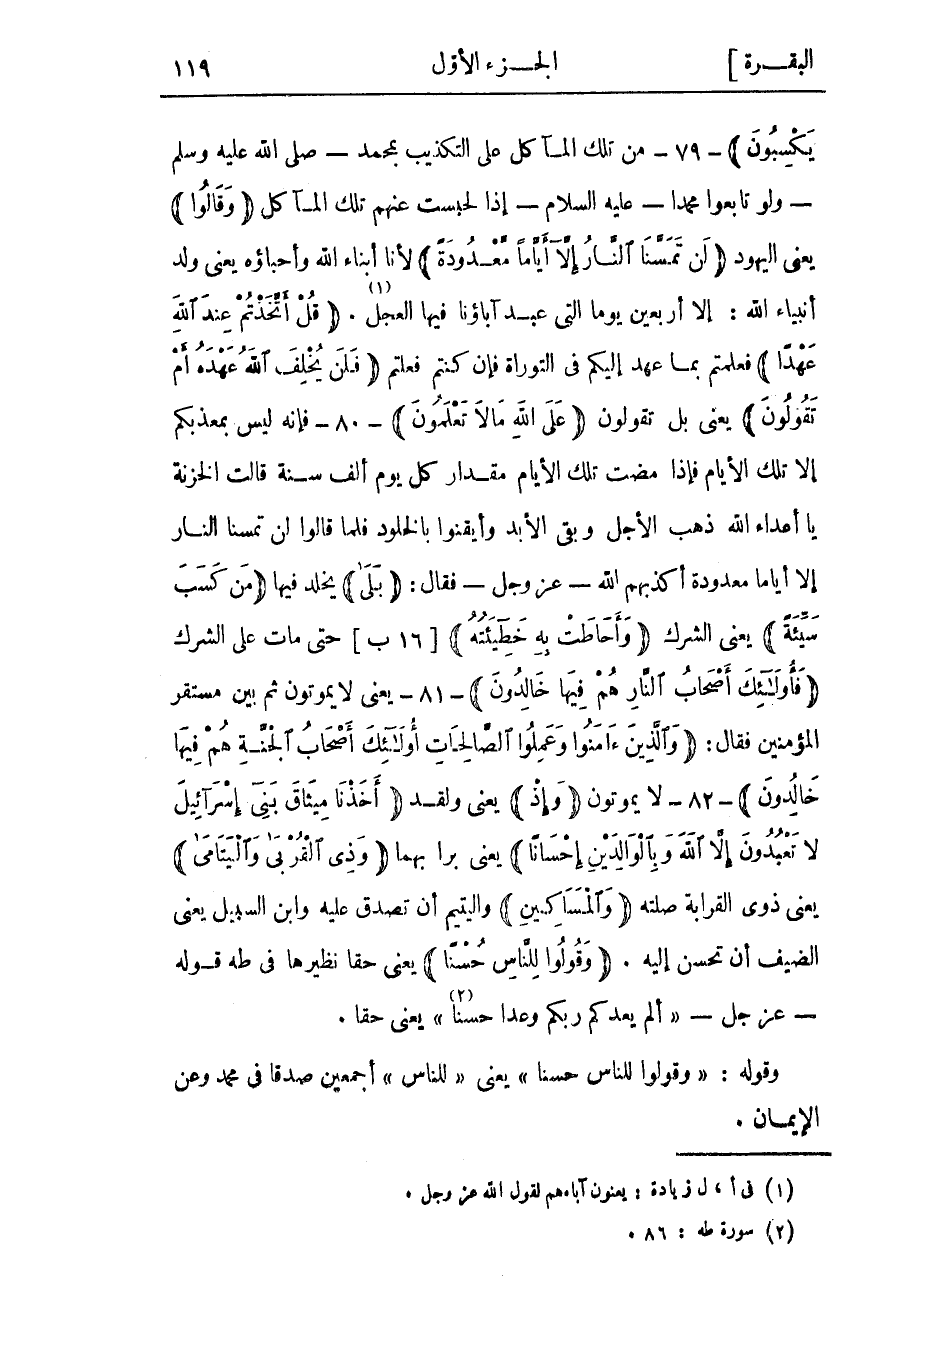 البقـــرة ]
الجـــزء الأول
١١٩
يَكْسِبُونَ ﴾ - ٧٩ - من تلك المـآ كل على التكذيب بمحمد — صلى الله عليه وسلم
— ولو تابعوا محمدا — عليه السلام — إذا لحبست عنهم تلك المـآ كل ﴿ وَقَالُوا ﴾
يعنى اليهود ﴿ لَن تَمَسَّنَا ٱلنَّـارُ إِلَّآ أَيَّاماً مَّعْـدُودَةً ﴾ لأنا أبناء الله وأحباؤه يعنى ولد
أنبياء الله : إلا أربعين يوما التى عبـد آباؤنا فيها العجل (١) . ﴿ قُلْ أَتَّخَذْتُمْ عِندَ ٱللَّهِ
عَهْدًا ﴾ فعلمتم بمـا عهد إليكم فى التوراة فإن كنتم فعلتم ﴿ فَـلَن يُخْلِفَ ٱللَّهُ عَهْدَهُ أَمْ
تَقُولُونَ ﴾ يعنى بل تقولون ﴿ عَلَى اللَّهِ مَالاَ تَعْلَمُونَ ﴾ - ٨٠ - فإنه ليس بمعذبكم
إلا تلك الأيام فإذا مضت تلك الأيام مقـدار كل يوم ألف سـنة قالت الخزنة
يا أعداء الله ذهب الأجل وبقى الأبد وأيقنوا بالخلود فلما قالوا لن تمسنا النـار
إلا أياما معدودة أكذبهم الله — عز وجل — فقال : ﴿ بَـلَىٰ ﴾ يخلد فيها ﴿ مَن كَسَبَ
سَيِّئَةً ﴾ يعنى الشرك ﴿ وَأَحَاطَتْ بِهِ خَطِيٓئَتُهُ ﴾ [ ١٦ ب ] حتى مات على الشرك
﴿ فَأُولَـٰٓئِكَ أَصْحَابُ ٱلنَّارِ هُمْ فِيهَا خَالِدُونَ ﴾ - ٨١ - يعنى لا يموتون ثم بين مستقر
المؤمنين فقال : ﴿ وَٱلَّذِينَ ءَامَنُوا وَعَمِلُوا ٱلصَّالِحَاتِ أُولَـٰٓئِكَ أَصْحَابُ ٱلْجَنَّـةِ هُمْ فِيهَا
خَالِدُونَ ﴾ - ٨٢ - لا يموتون ﴿ وَإِذْ ﴾ يعنى ولقـد ﴿ أَخَذْنَا مِيثَاقَ بَنِىٓ إِسْرَآئِيلَ
لا تَعْبُدُونَ إِلَّا ٱللَّهَ وَبِٱلْوَالِدَيْنِ إِحْسَانًا ﴾ يعنى برا بهما ﴿ وَذِى ٱلْقُرْبَىٰ وَٱلْيَتَامَىٰ ﴾
يعنى ذوى القرابة صلته ﴿ وَٱلْمَسَاكِـينِ ﴾ واليتيم أن تصدق عليه وابن السبيل يعنى
الضيف أن تحسن إليه . ﴿ وَقُولُوا لِلنَّاسِ حُسْنًا ﴾ يعنى حقا نظيرها فى طه قـوله
— عز جل — « ألم يعدكم ربكم وعدا حسنا (٢) » يعنى حقا .
وقوله : « وقولوا للناس حسنا » يعنى « للناس » أجمعين صدقا فى محمد وعن
الإيمـان .
(١) فى أ ، ل زيادة : يعنون آباءهم لقول الله عز وجل .
(٢) سورة طه : ٨٦ .